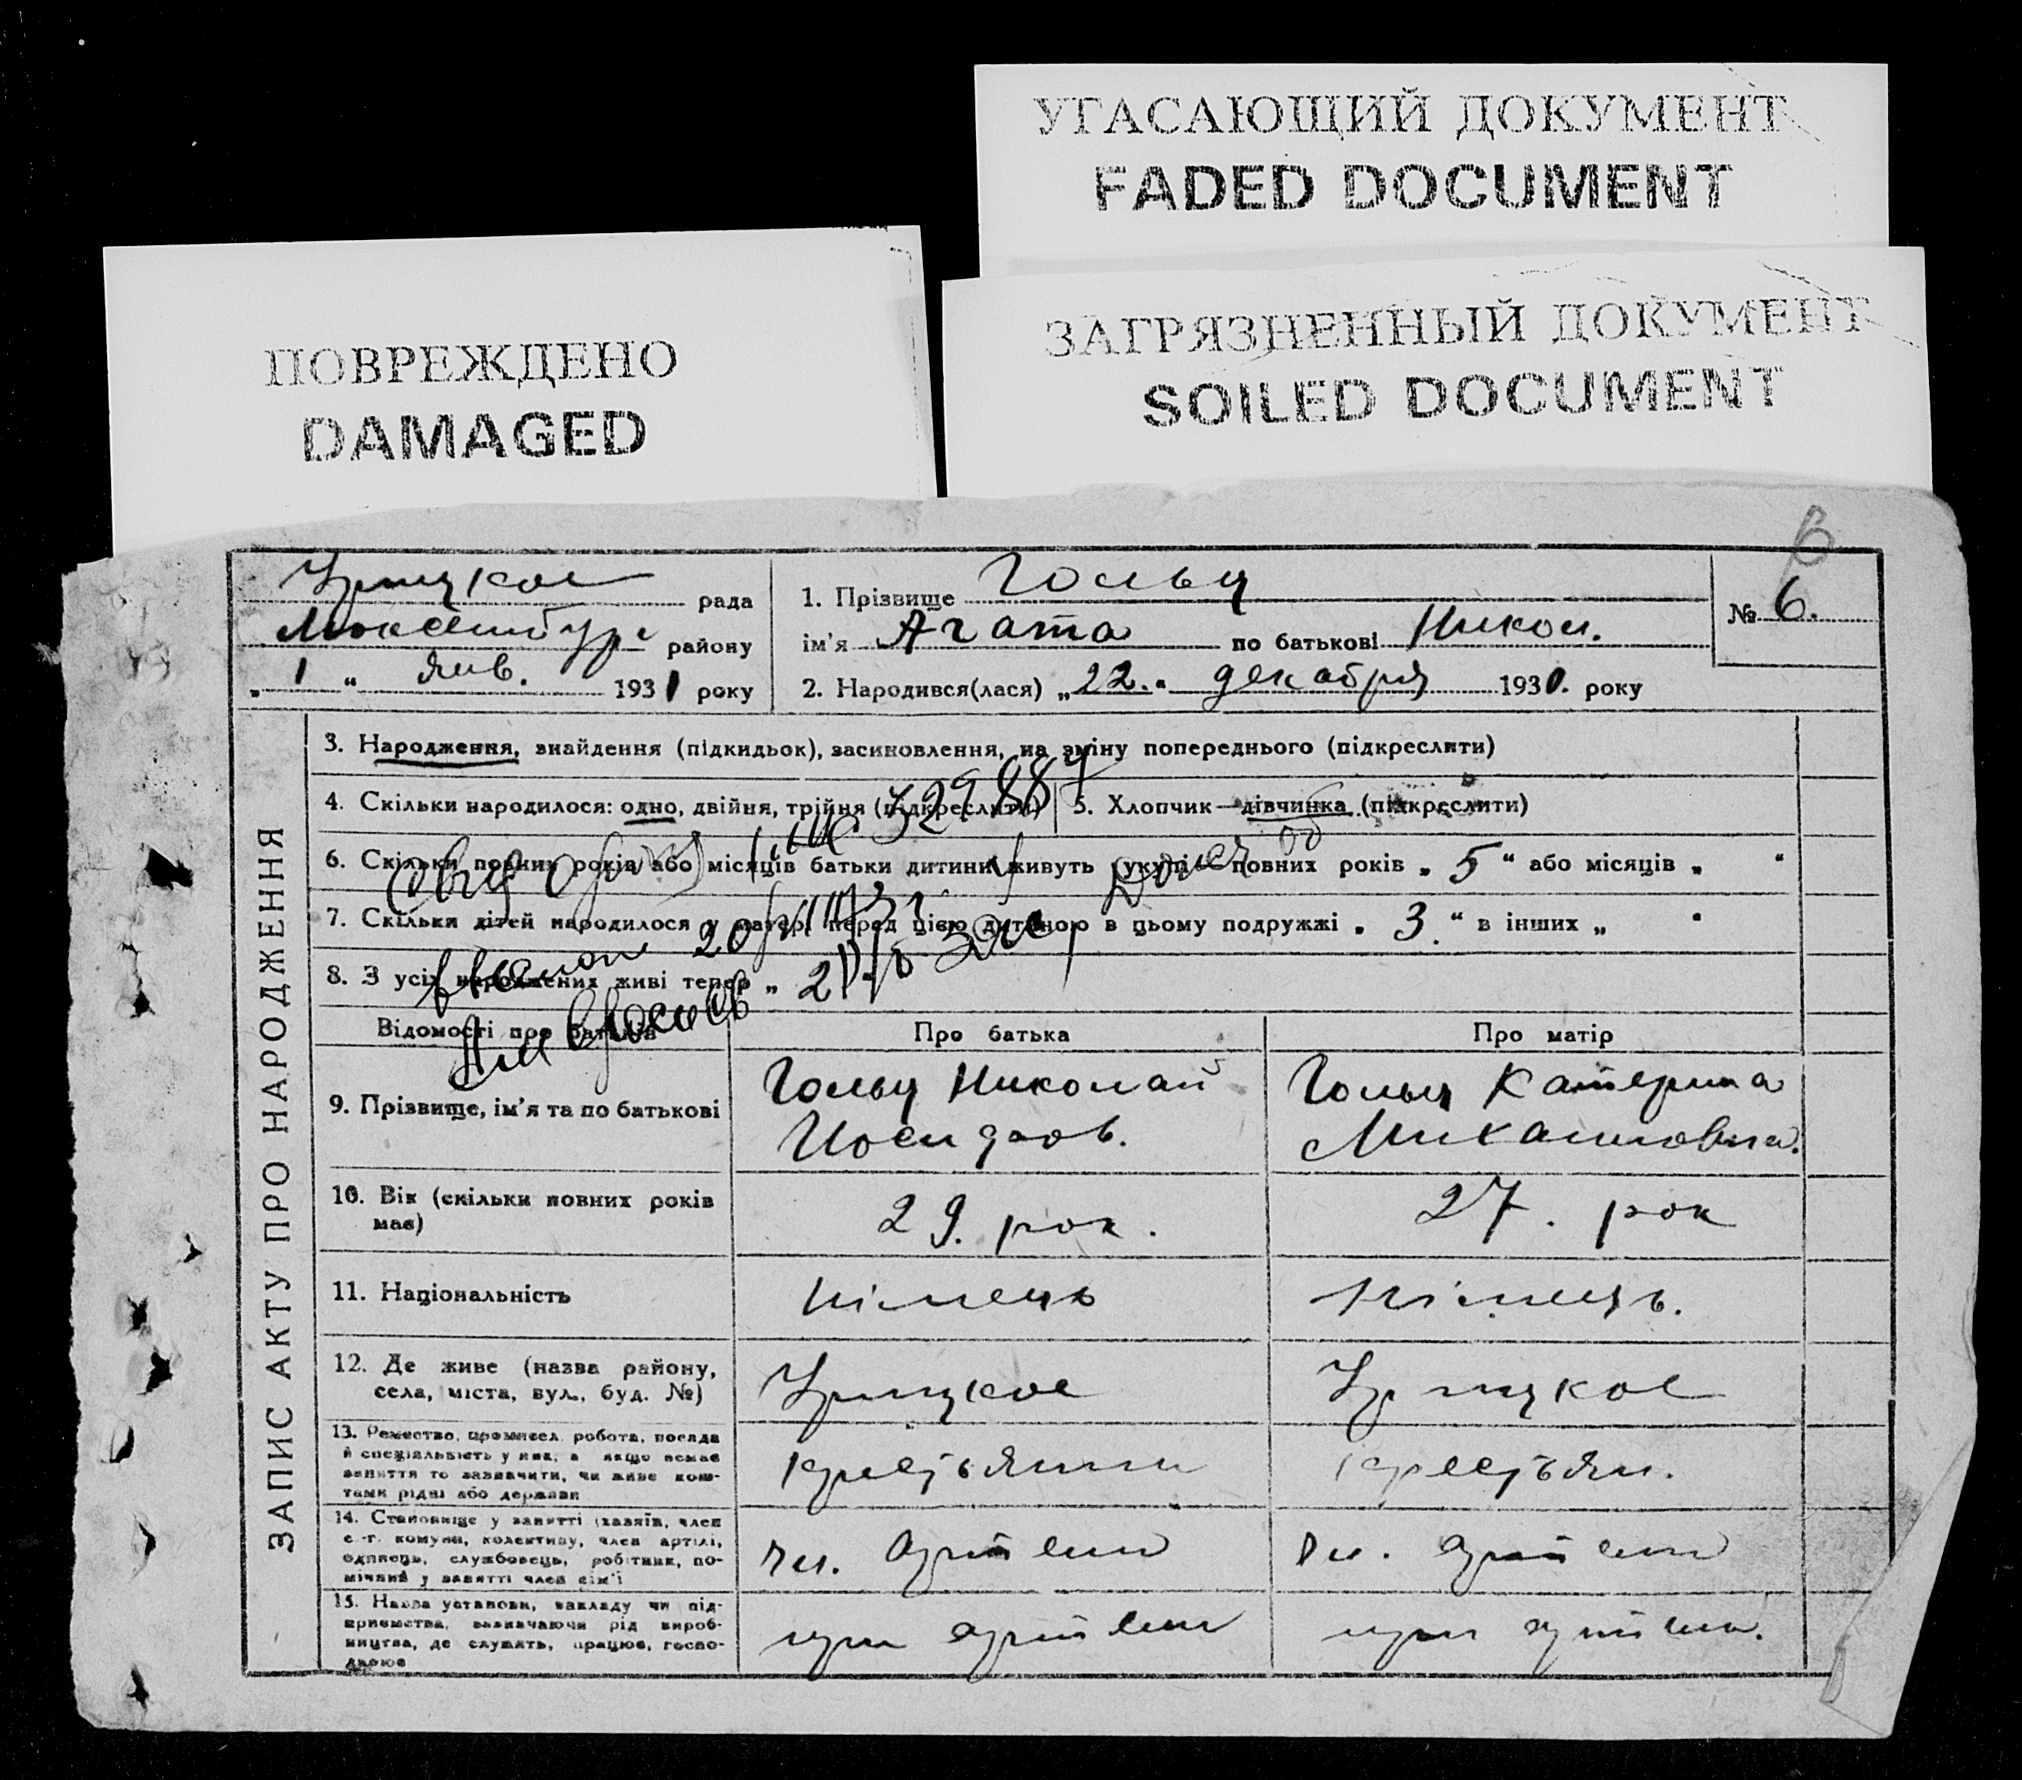 УГАСАЮЩИЙ ДОКУМЕНТ
FADED DOCUMENT
ПОВРЕЖДЕНО
DAMAGED
ЗАГРЯЗНЕННЫЙ ДОКУМЕНТ
SOILED DOCUMENT
В
Урицкое рада
района району
„ 1 “ янв. 1931 року
1. Прізвище Гольц
ім'я Агата по батькові Никол.
2. Народився(лася) „ 22. “ декабря 1930. року
№ 6.
ЗАПИС АКТУ ПРО НАРОДЖЕННЯ
3. Народження, знайдення (підкидьок), засиновлення, на зміну попереднього (підкреслити)
4. Скільки народилося: одно, двійня, трійня (підкреслити)
5. Хлопчик—дівчинка (підкреслити)
6. Скільки повних років або місяців батьки дитини живуть укупі—повних років „ 5 “ або місяців „ “
7. Скільки дітей народилося у матері перед цією дитиною в цьому подружжі „ 3. “ в інших „ “
8. З усіх народжених живі тепер „ 2
Відомості про батьків
Про батька
Про матір
9. Прізвище, ім'я та по батькові
Гольц Николай
Иосифов.
Гольц Катерина
Михайловна.
10. Вік (скільки повних років
має)
29. рок.
27. рок
11. Національність
німець
німець.
12. Де живе (назва району,
села, міста, вул., буд. №)
Урицкое
Урицкое
13. Ремество, промисел, робота, посада
й спеціальність у них; а якщо немає
заняття то зазначити, чи живе кош-
тами рідні або держави
крестьянин
крестьян.
14. Становище у занятті (хазяїн, член
с.-г. комуни, колективу, член артілі,
одинець, службовець, робітник, по-
мічний у занятті член сім'ї
чл. артели
чл. артели
15. Назва установи, закладу чи під-
приємства, зазначаючи рід вироб-
ництва, де служить, працює, госпо-
дарює
при артели
при артели.